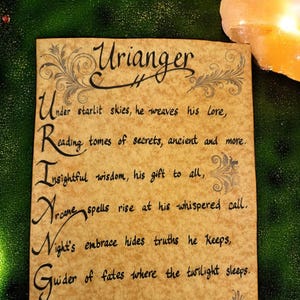 Urianger
Under starlit skies, he weaves his lore,
Reading tomes of secrets, ancient and more.
Insightful wisdom, his gift to all,
Arcane spells rise at his whispered call.
Night's embrace hides truths he keeps,
Guider of fates where the twilight sleeps.